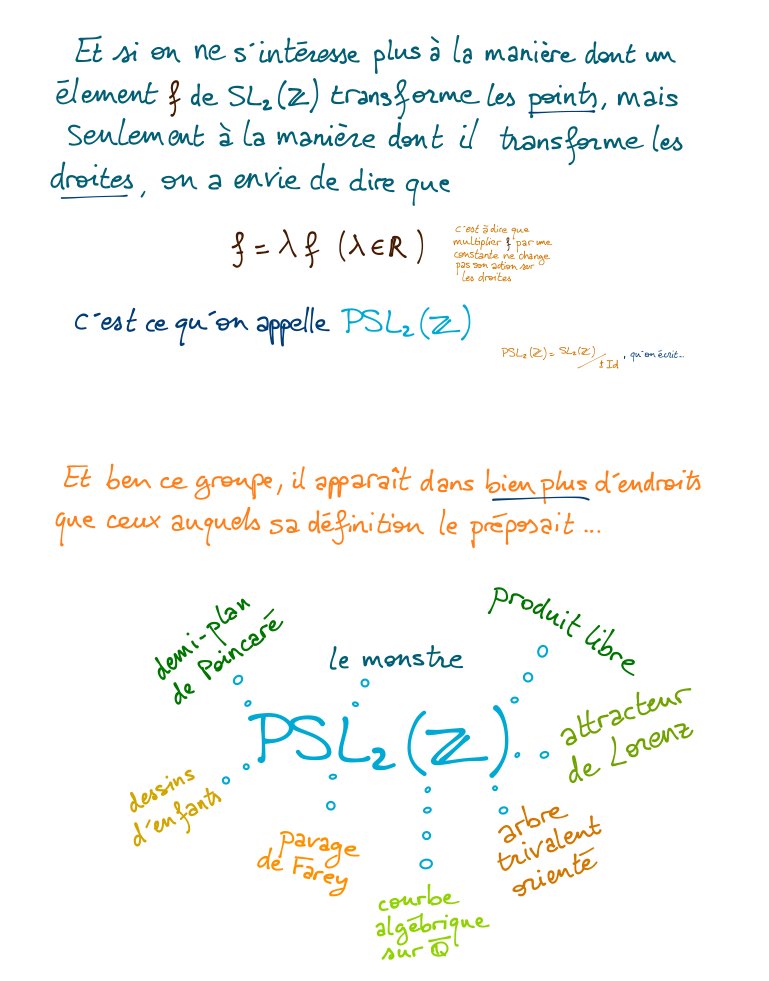 Et si on ne s'intéresse plus à la manière dont un
élement f de SL₂(ℤ) transforme les points, mais
seulement à la manière dont il transforme les
droites, on a envie de dire que
f = λ f (λ ∈ R)
c'est à dire que
multiplier f par une
constante ne change
pas son action sur
les droites
c'est ce qu'on appelle PSL₂(ℤ)
PSL₂(ℤ) = SL₂(ℤ)/±Id, qu'on écrit...
Et ben ce groupe, il apparaît dans bien plus d'endroits
que ceux auquels sa définition le préposait ...
demi-plan
de Poincaré
le monstre
produit libre
PSL₂(ℤ)
attracteur
de Lorenz
dessins
d'enfants
pavage
de Farey
arbre
trivalent
orienté
courbe
algébrique
sur ℚ̅